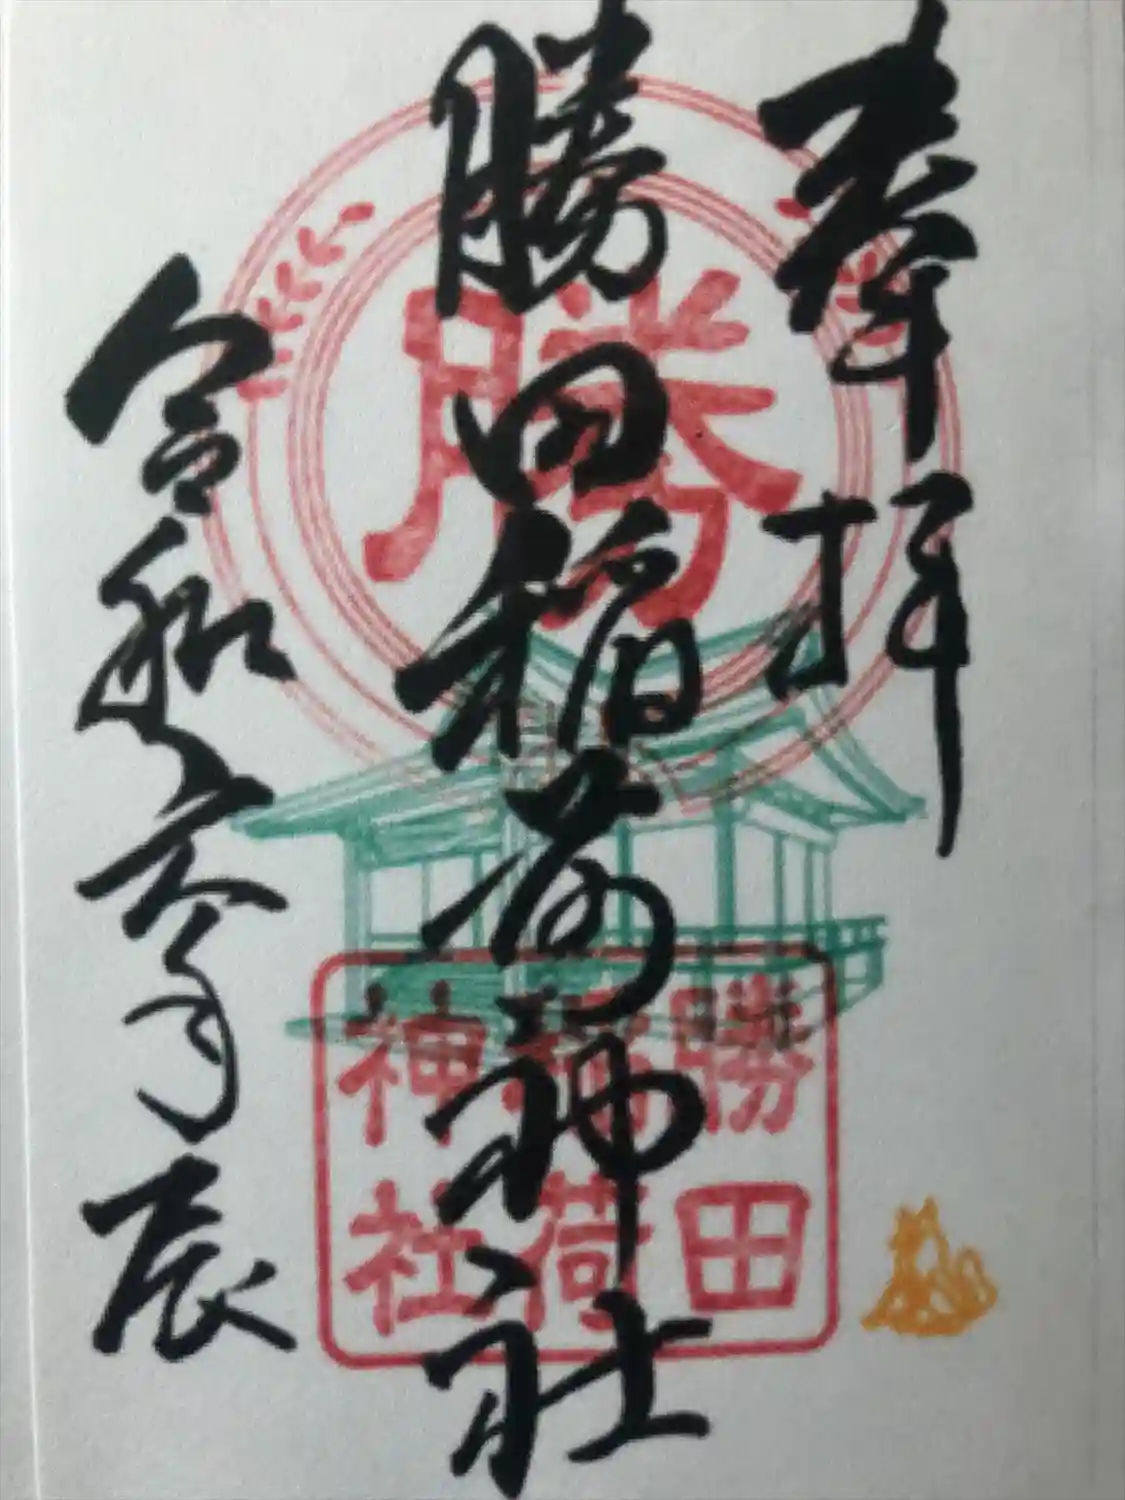 奉拝
勝田稲荷神社
令和六年辰
勝
勝田
稲荷
神社